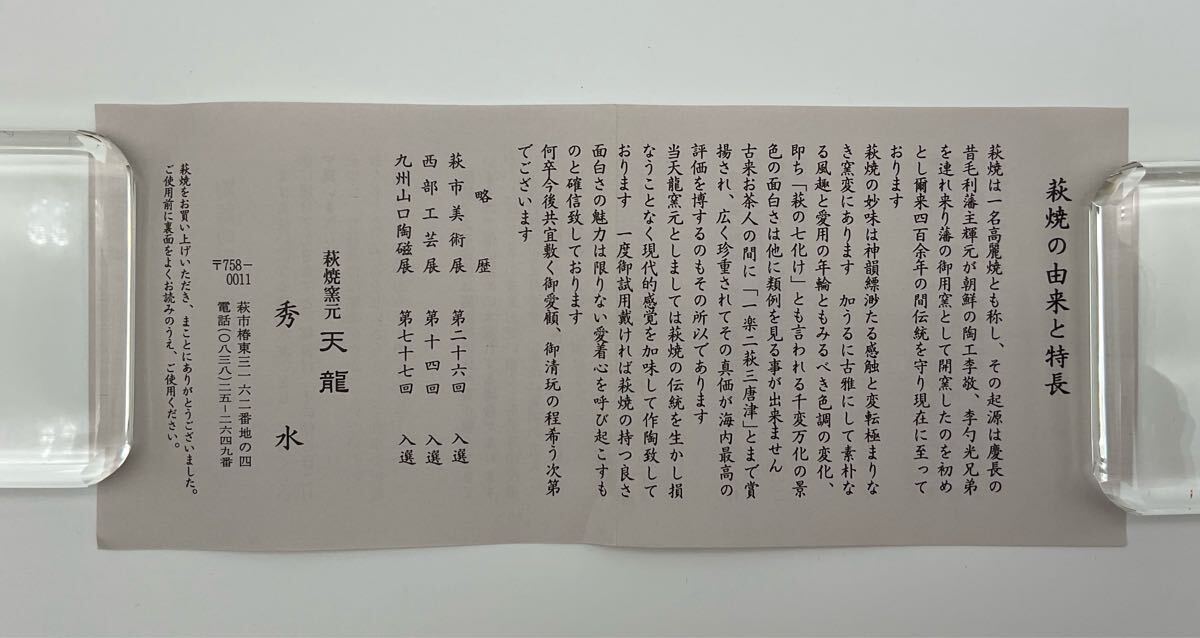 萩焼の由来と特長
萩焼は一名高麗焼とも称し、その起源は慶長の
昔毛利藩主輝元が朝鮮の陶工李敬、李勺光兄弟
を連れ来り藩の御用窯として開窯したのを初め
とし爾来四百余年の間伝統を守り現在に至って
おります
萩焼の妙味は神韻縹渺たる感触と変転極まりな
き窯変にあります　加うるに古雅にして素朴な
る風趣と愛用の年輪ともみるべき色調の変化、
即ち「萩の七化け」とも言われる千変万化の景
色の面白さは他に類例を見る事が出来ません
古来お茶人の間に「一楽二萩三唐津」とまで賞
揚され、広く珍重されてその真価が海内最高の
評価を博するのもその所以であります
当天龍窯元としましては萩焼の伝統を生かし損
なうことなく現代的感覚を加味して作陶致して
おります　一度御試用戴ければ萩焼の持つ良さ
面白さの魅力は限りない愛着心を呼び起こすも
のと確信致しております
何卒今後共宜敷く御愛顧、御清玩の程希う次第
でございます
略歴
萩市美術展　第二十六回　入選
西部工芸展　第十四回　入選
九州山口陶磁展　第七十七回　入選
萩焼窯元 天龍
秀水
〒758-0011　萩市椿東三一六二番地の四
電話(〇八三八)二五-二六四九番
萩焼をお買い上げいただき、まことにありがとうございました。
ご使用前に裏面をよくお読みのうえ、ご使用ください。